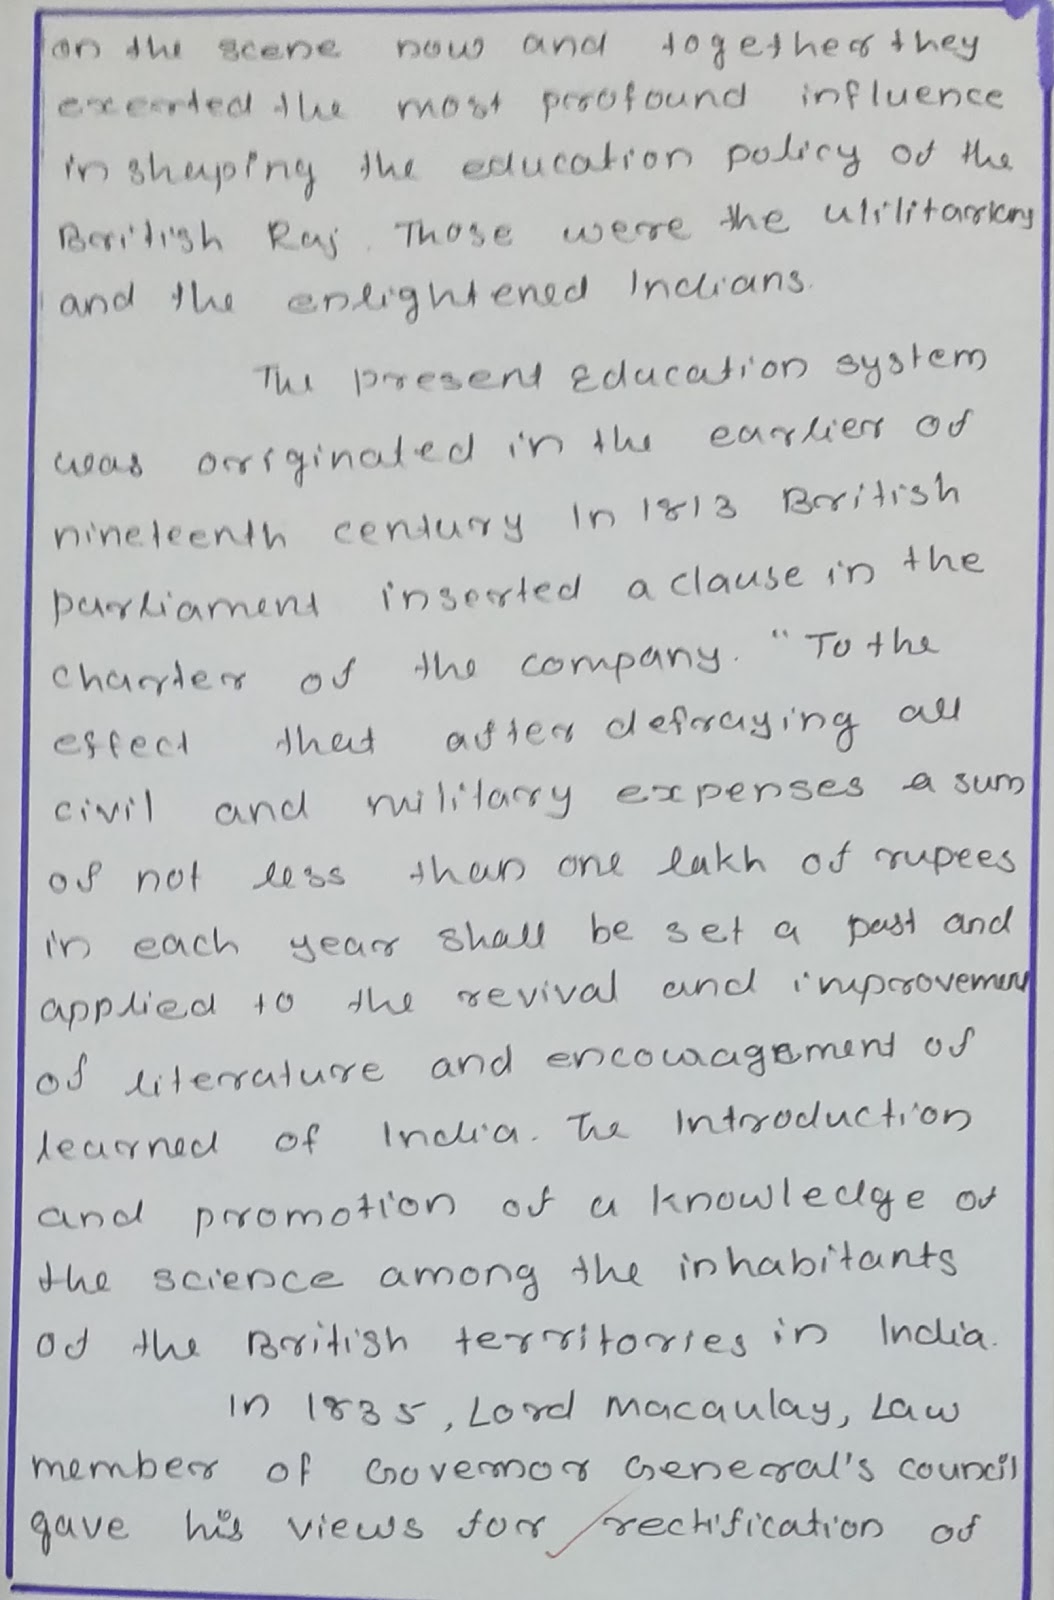 on the scene now and together they
exerted the most profound influence
in shaping the education policy of the
British Raj. Those were the ulilitarians
and the enlightened Indians.
The present Education system
was originated in the earlier of
nineteenth century In 1813 British
parliament inserted a clause in the
charter of the company. "To the
effect that after defraying all
civil and military expenses a sum
of not less than one lakh of rupees
in each year shall be set a past and
applied to the revival and improvement
of literature and encouragement of
learned of India. The Introduction
and promotion of a knowledge of
the science among the inhabitants
of the British territories in India.
In 1835, Lord Macaulay, Law
member of Governor General's council
gave his views for rectification of